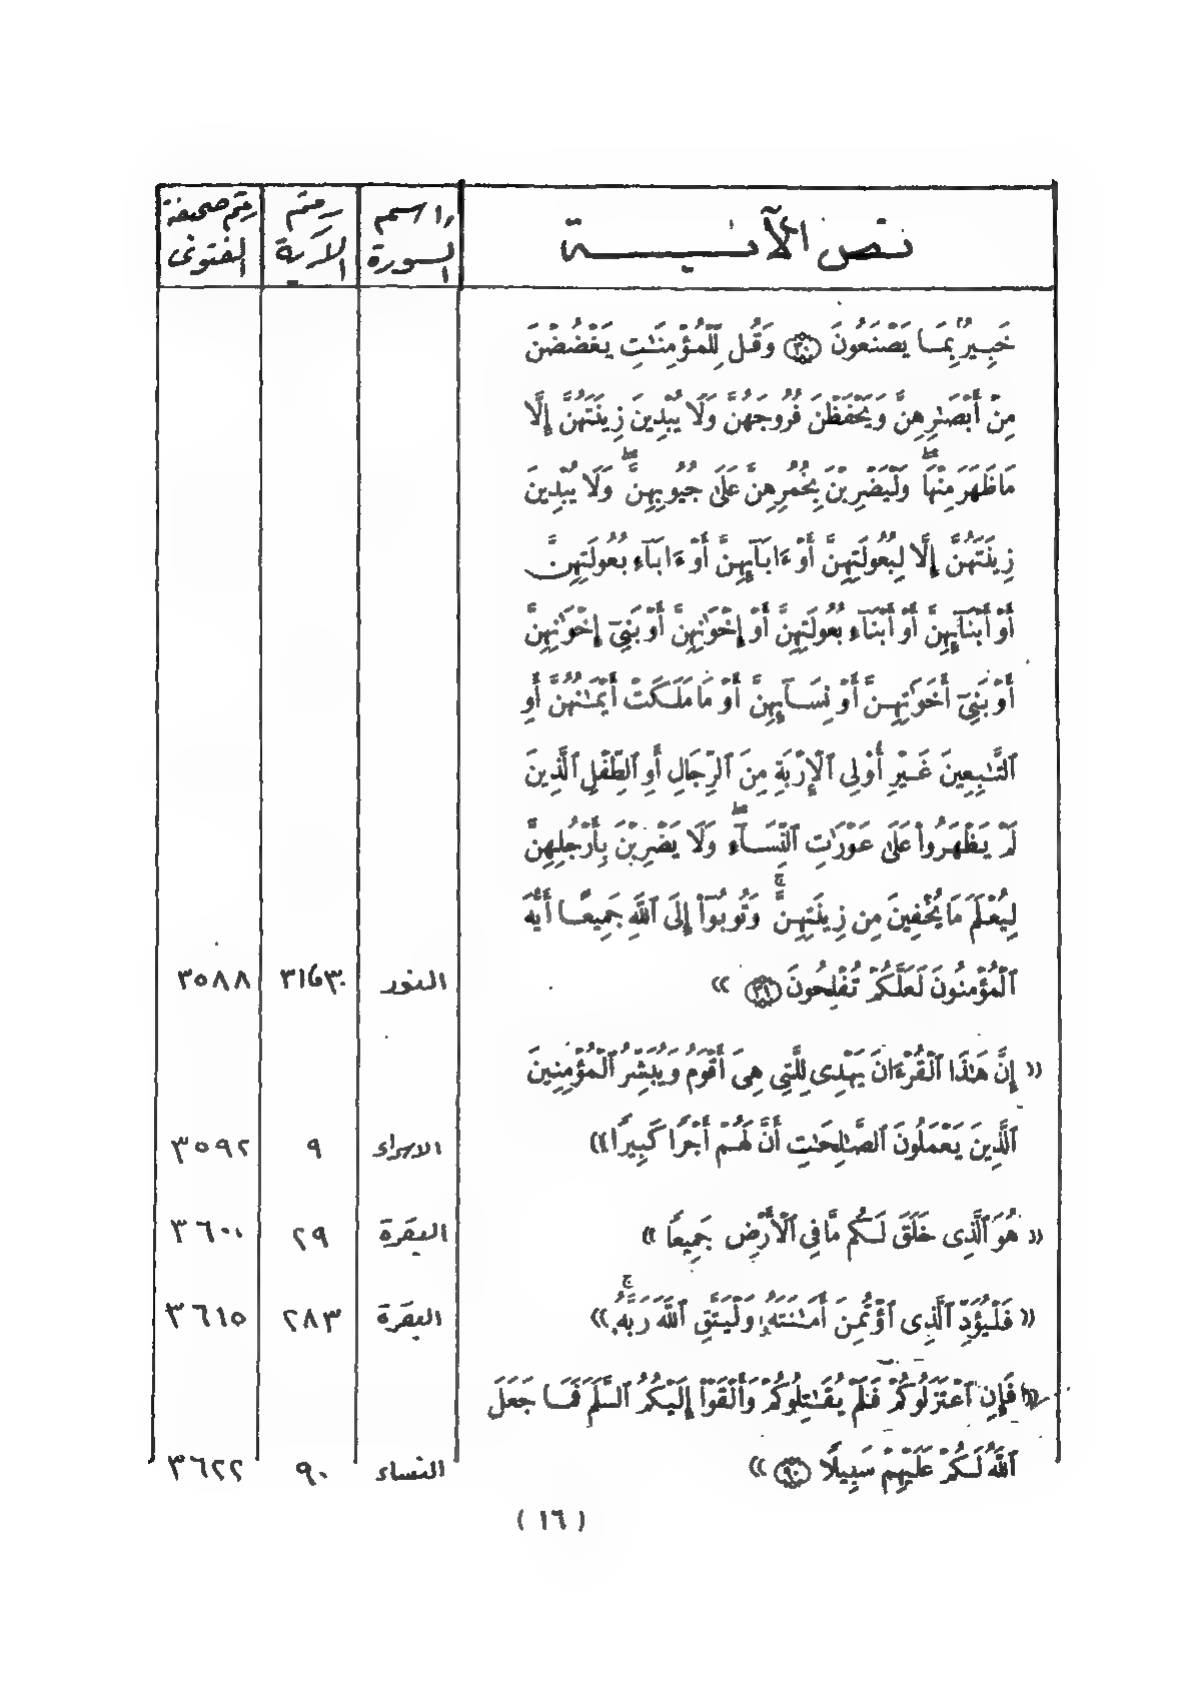 نص الآيــة | اسم السورة | رقم الآية | رقم صحيفة الفتوى
خَبِيرٌۢ بِمَا يَصْنَعُونَ ﴿٣٠﴾ وَقُل لِّلْمُؤْمِنَٰتِ يَغْضُضْنَ
مِنْ أَبْصَٰرِهِنَّ وَيَحْفَظْنَ فُرُوجَهُنَّ وَلَا يُبْدِينَ زِينَتَهُنَّ إِلَّا
مَا ظَهَرَ مِنْهَا ۖ وَلْيَضْرِبْنَ بِخُمُرِهِنَّ عَلَىٰ جُيُوبِهِنَّ ۖ وَلَا يُبْدِينَ
زِينَتَهُنَّ إِلَّا لِبُعُولَتِهِنَّ أَوْ ءَابَآئِهِنَّ أَوْ ءَابَآءِ بُعُولَتِهِنَّ
أَوْ أَبْنَآئِهِنَّ أَوْ أَبْنَآءِ بُعُولَتِهِنَّ أَوْ إِخْوَٰنِهِنَّ أَوْ بَنِىٓ إِخْوَٰنِهِنَّ
أَوْ بَنِىٓ أَخَوَٰتِهِنَّ أَوْ نِسَآئِهِنَّ أَوْ مَا مَلَكَتْ أَيْمَٰنُهُنَّ أَوِ
ٱلتَّٰبِعِينَ غَيْرِ أُوْلِى ٱلْإِرْبَةِ مِنَ ٱلرِّجَالِ أَوِ ٱلطِّفْلِ ٱلَّذِينَ
لَمْ يَظْهَرُوا۟ عَلَىٰ عَوْرَٰتِ ٱلنِّسَآءِ ۖ وَلَا يَضْرِبْنَ بِأَرْجُلِهِنَّ
لِيُعْلَمَ مَا يُخْفِينَ مِن زِينَتِهِنَّ ۚ وَتُوبُوٓا۟ إِلَى ٱللَّهِ جَمِيعًا أَيُّهَ
ٱلْمُؤْمِنُونَ لَعَلَّكُمْ تُفْلِحُونَ ﴿٣١﴾ » | النور | ٣١،٣٠ | ٣٥٨٨
« إِنَّ هَٰذَا ٱلْقُرْءَانَ يَهْدِى لِلَّتِى هِىَ أَقْوَمُ وَيُبَشِّرُ ٱلْمُؤْمِنِينَ
ٱلَّذِينَ يَعْمَلُونَ ٱلصَّٰلِحَٰتِ أَنَّ لَهُمْ أَجْرًا كَبِيرًا » | الاسراء | ٩ | ٣٥٩٢
« هُوَ ٱلَّذِى خَلَقَ لَكُم مَّا فِى ٱلْأَرْضِ جَمِيعًا » | البقرة | ٢٩ | ٣٦٠٠
« فَلْيُؤَدِّ ٱلَّذِى ٱؤْتُمِنَ أَمَٰنَتَهُۥ وَلْيَتَّقِ ٱللَّهَ رَبَّهُۥ ۚ » | البقرة | ٢٨٣ | ٣٦١٥
« فَإِنِ ٱعْتَزَلُوكُمْ فَلَمْ يُقَٰتِلُوكُمْ وَأَلْقَوْا۟ إِلَيْكُمُ ٱلسَّلَمَ فَمَا جَعَلَ
ٱللَّهُ لَكُمْ عَلَيْهِمْ سَبِيلًا ﴿٩٠﴾ » | النساء | ٩٠ | ٣٦٢٢
( ١٦ )